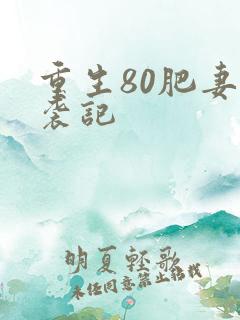 重生80肥妻
袭记
明夏轻歌
未经同意禁止转载